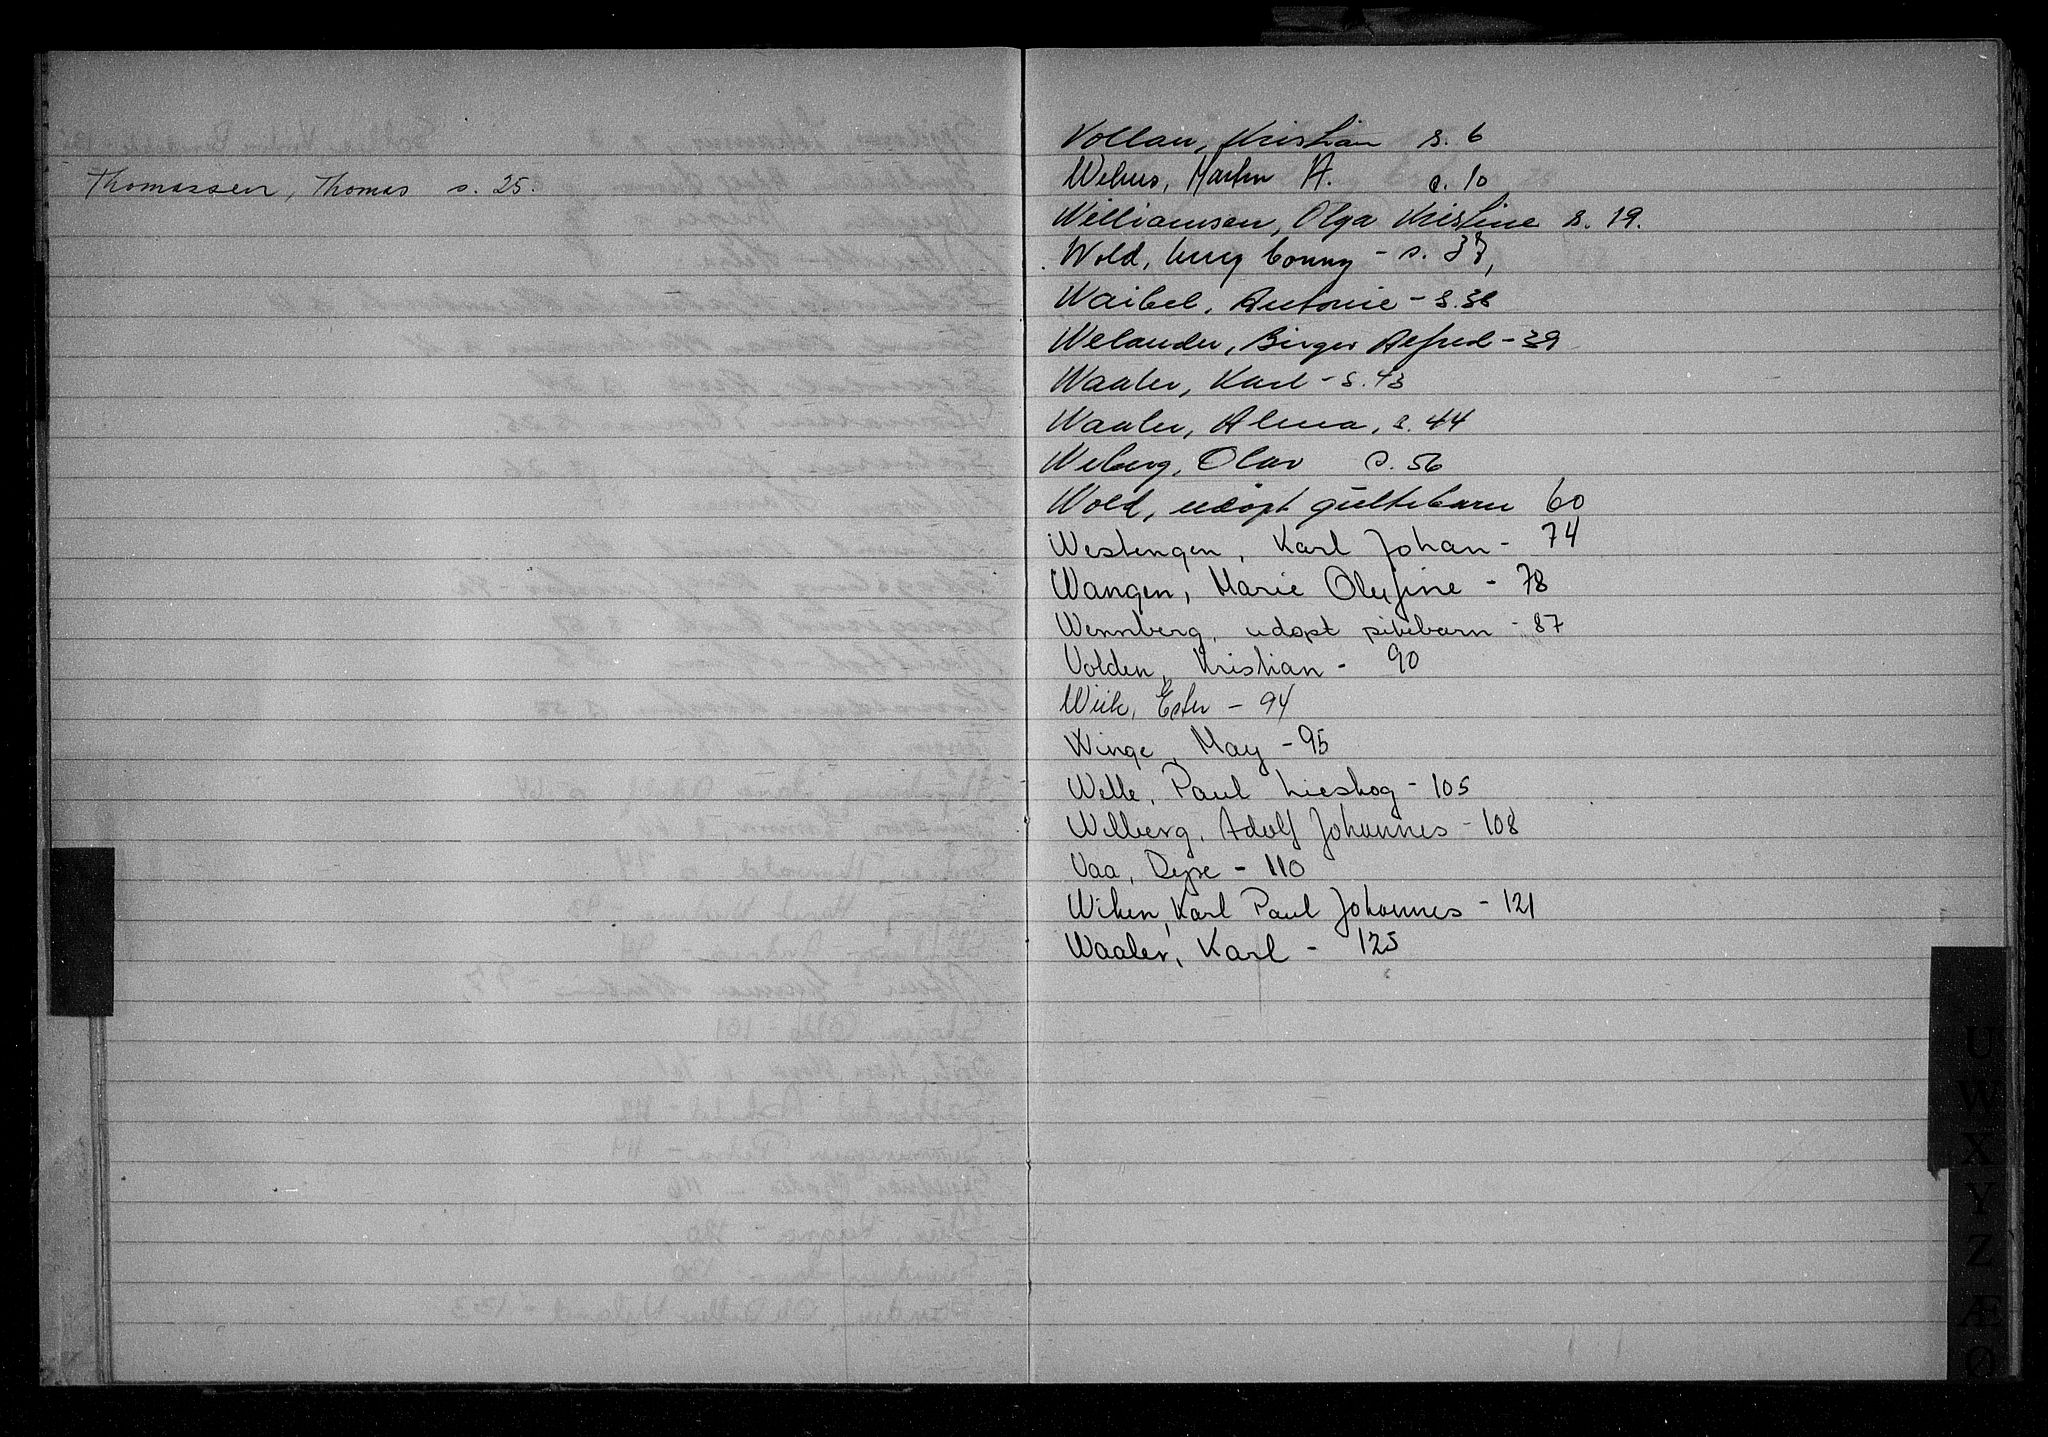 Thomassen, Thomas s. 25.
Vollan, Kristian s. 6
Wehus, Martin A. s. 10
Williamsen, Olga Kristine s. 19.
Wold, Conny - s. 37,
Waibel, Antonie - s. 38
Welander, Birger Alfred - 39
Waaler, Karl - s. 43
Waaler, Alma, s. 44
Weberg, Olav s. 56
Wold, udøpt guttebarn 60
Westengen, Karl Johan - 74
Wangen, Marie Olufine - 78
Wennberg, udøpt pikebarn - 87
Volden, Kristian - 90
Wiik, Ester - 94
Winge, May - 95
Welle, Paul Lieskog - 105
Wilberg, Adolf Johannes - 108
Vaa, Dyre - 110
Wiken, Karl Paul Johannes - 121
Waaler, Karl - 125
U
W
X
Y
Z
Æ
Ø